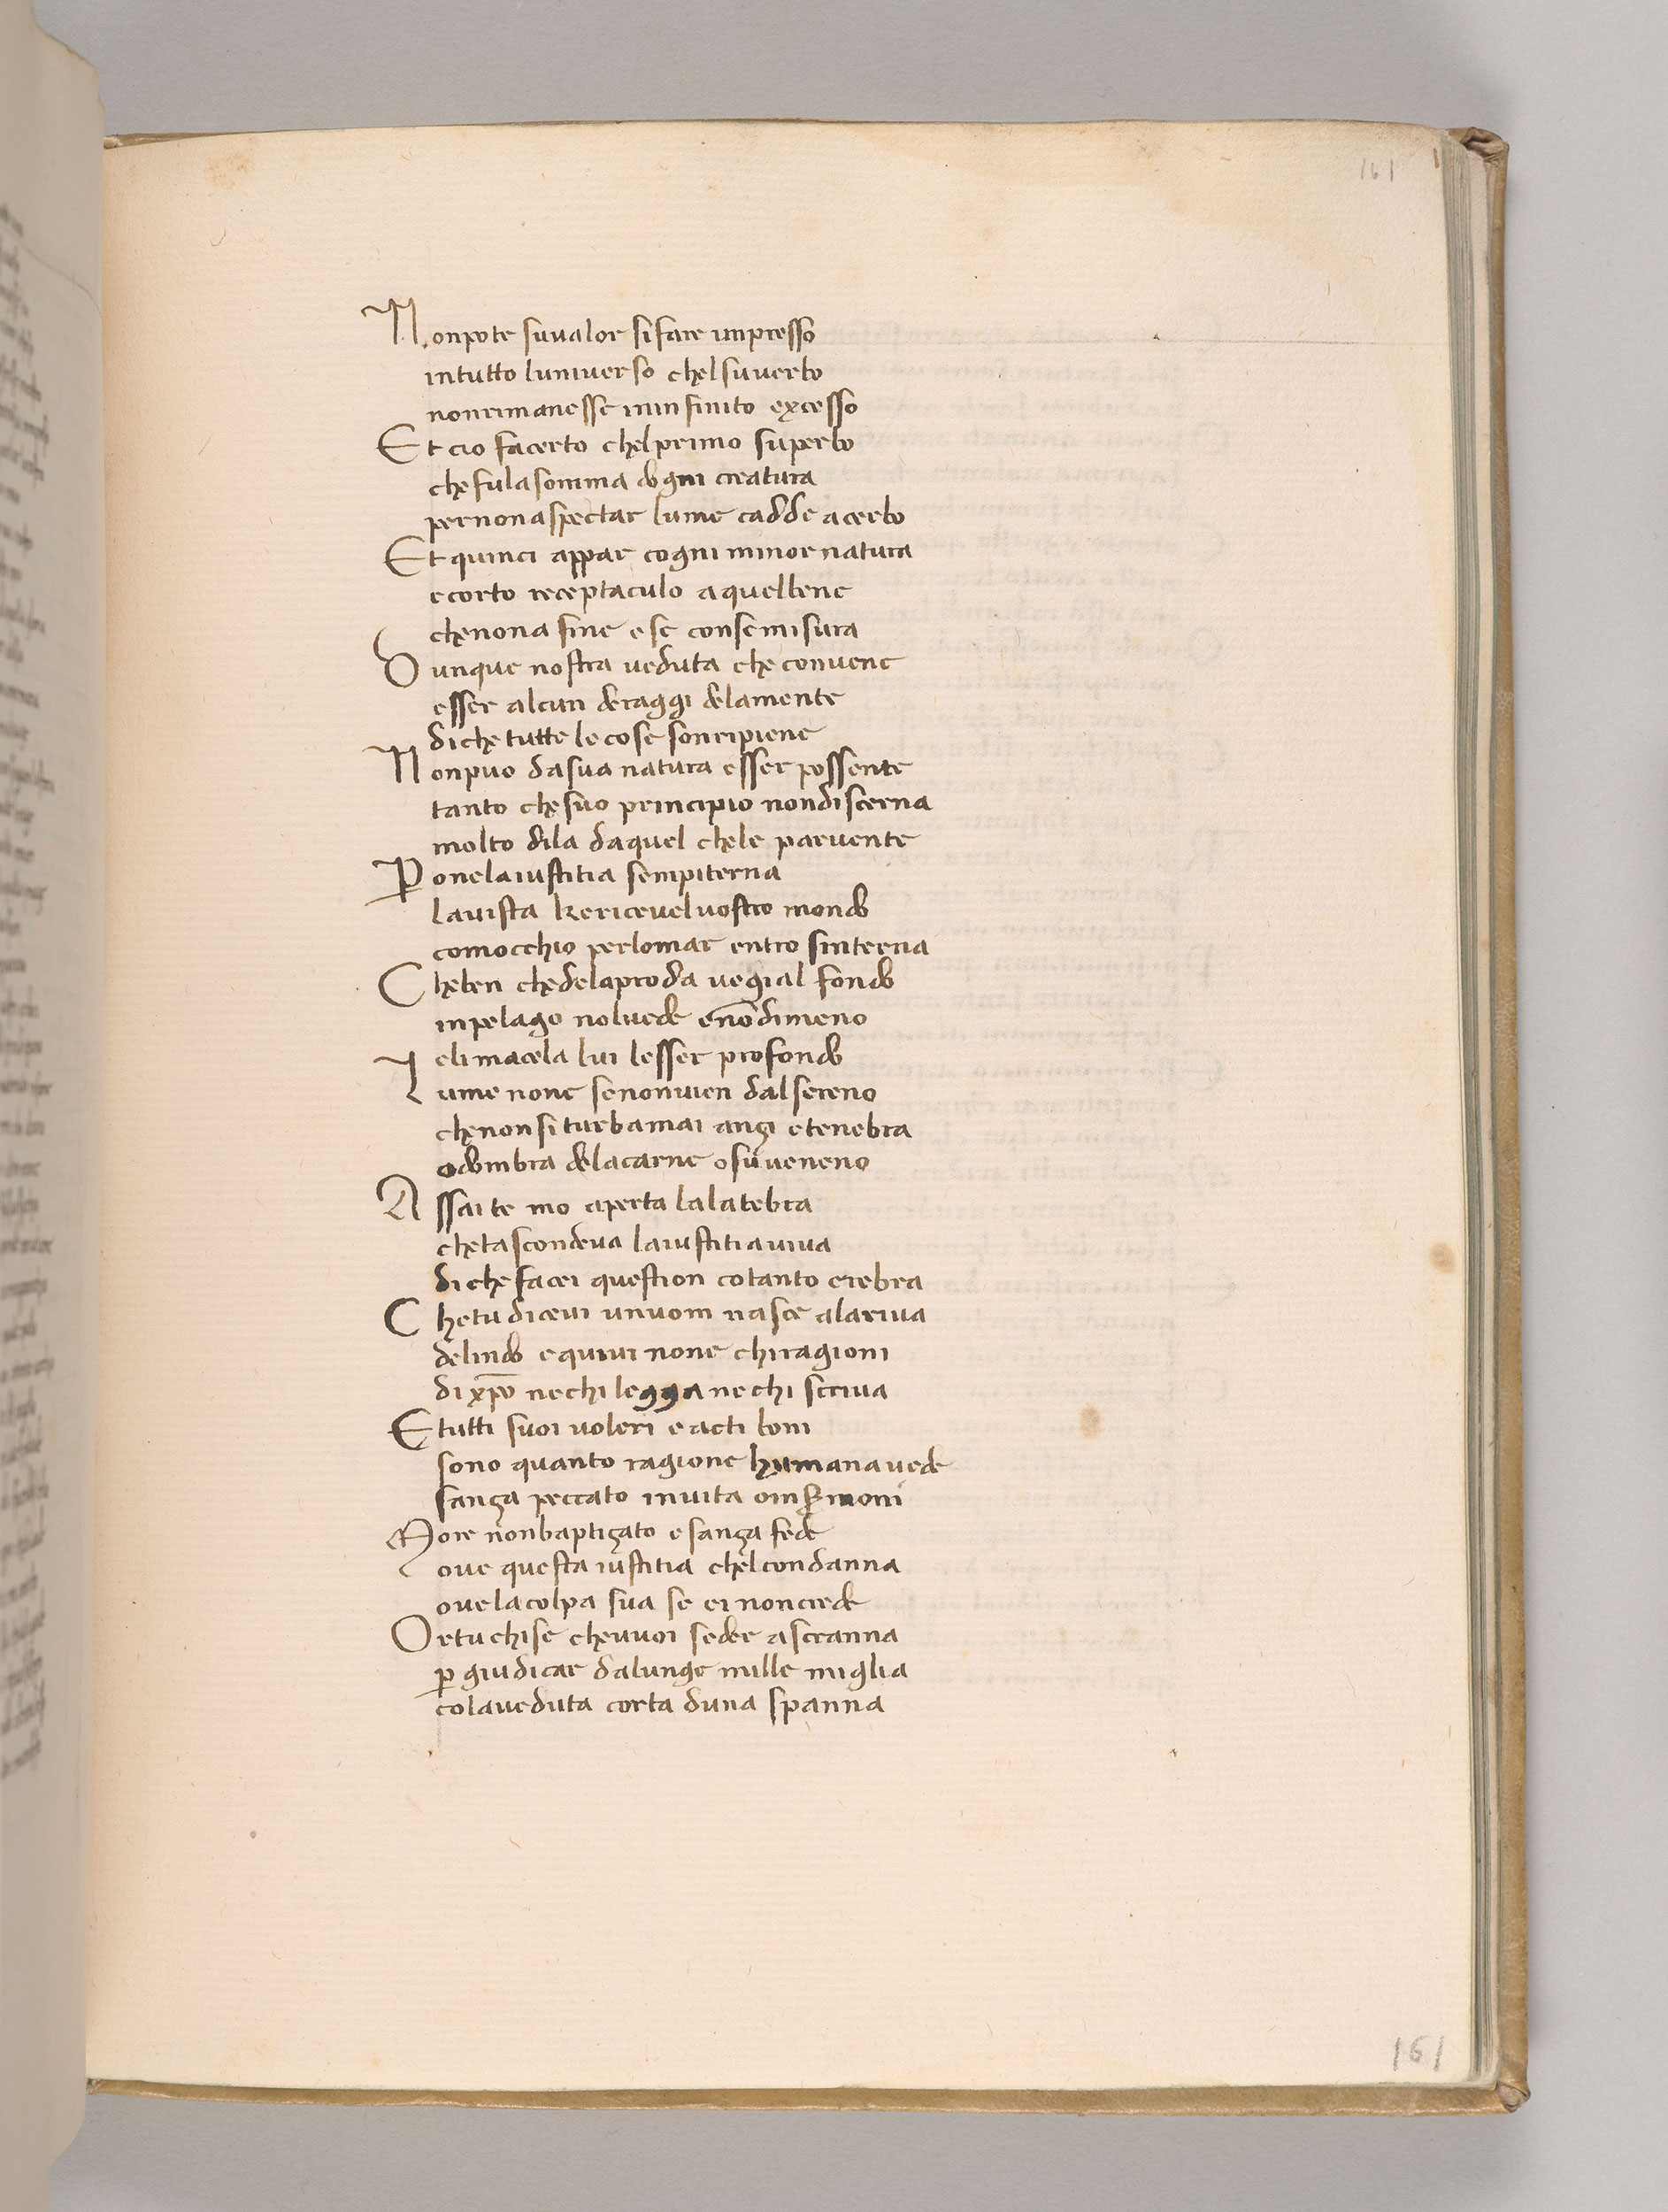 161
Nonpote suualor sifare impresso
intutto luniuerso chelsuuerbo
nonrimanesse ininfinito excesso
Et cio facerto chelprimo superbo
chefulasomma dogni creatura
pernonaspectar lume cadde acerbo
Et quinci appar cogni minor natura
ecorto receptaculo aquelbene
chenona fine ese consemisura
Dunque nostra ueduta che conuene
esser alcun deraggi delamente
diche tutte le cose sonripiene
Nonpuo dasua natura esser possente
tanto chesuo principio nondiscerna
molto dila daquel chele paruente
Ponelaiustitia sempiterna
lauista kericeuelvostro mondo
comocchio perlomar entro sinterna
Cheben chedelaproda uegial fondo
inpelago noluede enōdimeno
eli macela lui lesser profondo
Lume none senonuien dalsereno
chenonsiturbamai anҫi etenebra
odombra delacarne osuueneno
Assai te mo aperta lalatebra
chetascondeua laiustitiauiua
diche facei question cotanto crebra
Chetu diceui unuom nasce alariua
delindo equiui none chiragioni
di xpō nechi legga nechi scriua
E tutti suoi uoleri e acti boni
sono quanto ragione humanauede
sanҫa peccato inuita oinsermoni
More nonbaptiҫato e sanҫa fede
oue questa iustitia chelcondanna
ouelacolpa sua se ei noncrede
Ortuchise cheuuoi seder ascranna
ꝑ giudicar dalunge mille miglia
colaueduta corta duna spanna
161